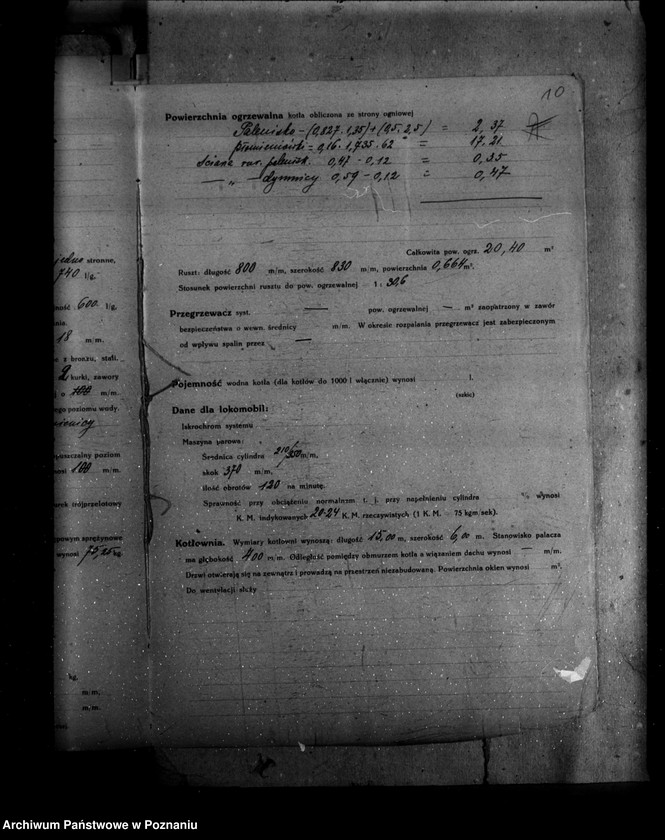 10
jedno stronne,
740 l/g.
ność 600 l/g.
18 m/m.
z bronzu, stali.
2 kurki, zawory
o 100 m/m.
ego poziomu wody.
uszczalny poziom
nosi 100 m/m.
urek trójprzelotowy
powym sprężynowe
wynosi 75,25 kg.
kg.
m/m.
m/m.
Powierzchnia ogrzewalna kotła obliczona ze strony ogniowej
Palenisko - (0,827. 1,35) + (0,5. 2,5) = 2,37
płomieniówki = 0,16. 1,735. 62 = 17,21
ściana rur. palenisk. 0,47 - 0,12 = 0,35
— „ — dymnicy 0,59 - 0,12 = 0,47
Całkowita pow. ogrz. 20,40 m²
Ruszt: długość 800 m/m, szerokość 830 m/m, powierzchnia 0,664 m².
Stosunek powierzchni rusztu do pow. ogrzewalnej 1 : 30,6
Przegrzewacz syst. — pow. ogrzewalnej — m² zaopatrzony w zawór
bezpieczeństwa o wewn. średnicy m/m. W okresie rozpalania przegrzewacz jest zabezpieczonym
od wpływu spalin przez —
Pojemność wodna kotła (dla kotłów do 1000 l włącznie) wynosi l.
(szkic)
Dane dla lokomobil:
Iskrochron systemu
Maszyna parowa:
Średnica cylindra 210/350 m/m,
skok 370 m/m,
ilość obrotów 120 na minutę.
Sprawność przy obciążeniu normalnem t. j. przy napełnieniu cylindra % wynosi
K. M. indykowanych 20-24 K. M. rzeczywistych (1 K. M. = 75 kgm/sek).
Kotłownia. Wymiary kotłowni wynoszą: długość 15,00 m, szerokość 6,00 m. Stanowisko palacza
ma głębokość 400 m/m. Odległość pomiędzy obmurzem kotła a wiązaniem dachu wynosi — m/m.
Drzwi otwierają się na zewnątrz i prowadzą na przestrzeń niezabudowaną. Powierzchnia okien wynosi m².
Do wentylacji służy
Archiwum Państwowe w Poznaniu